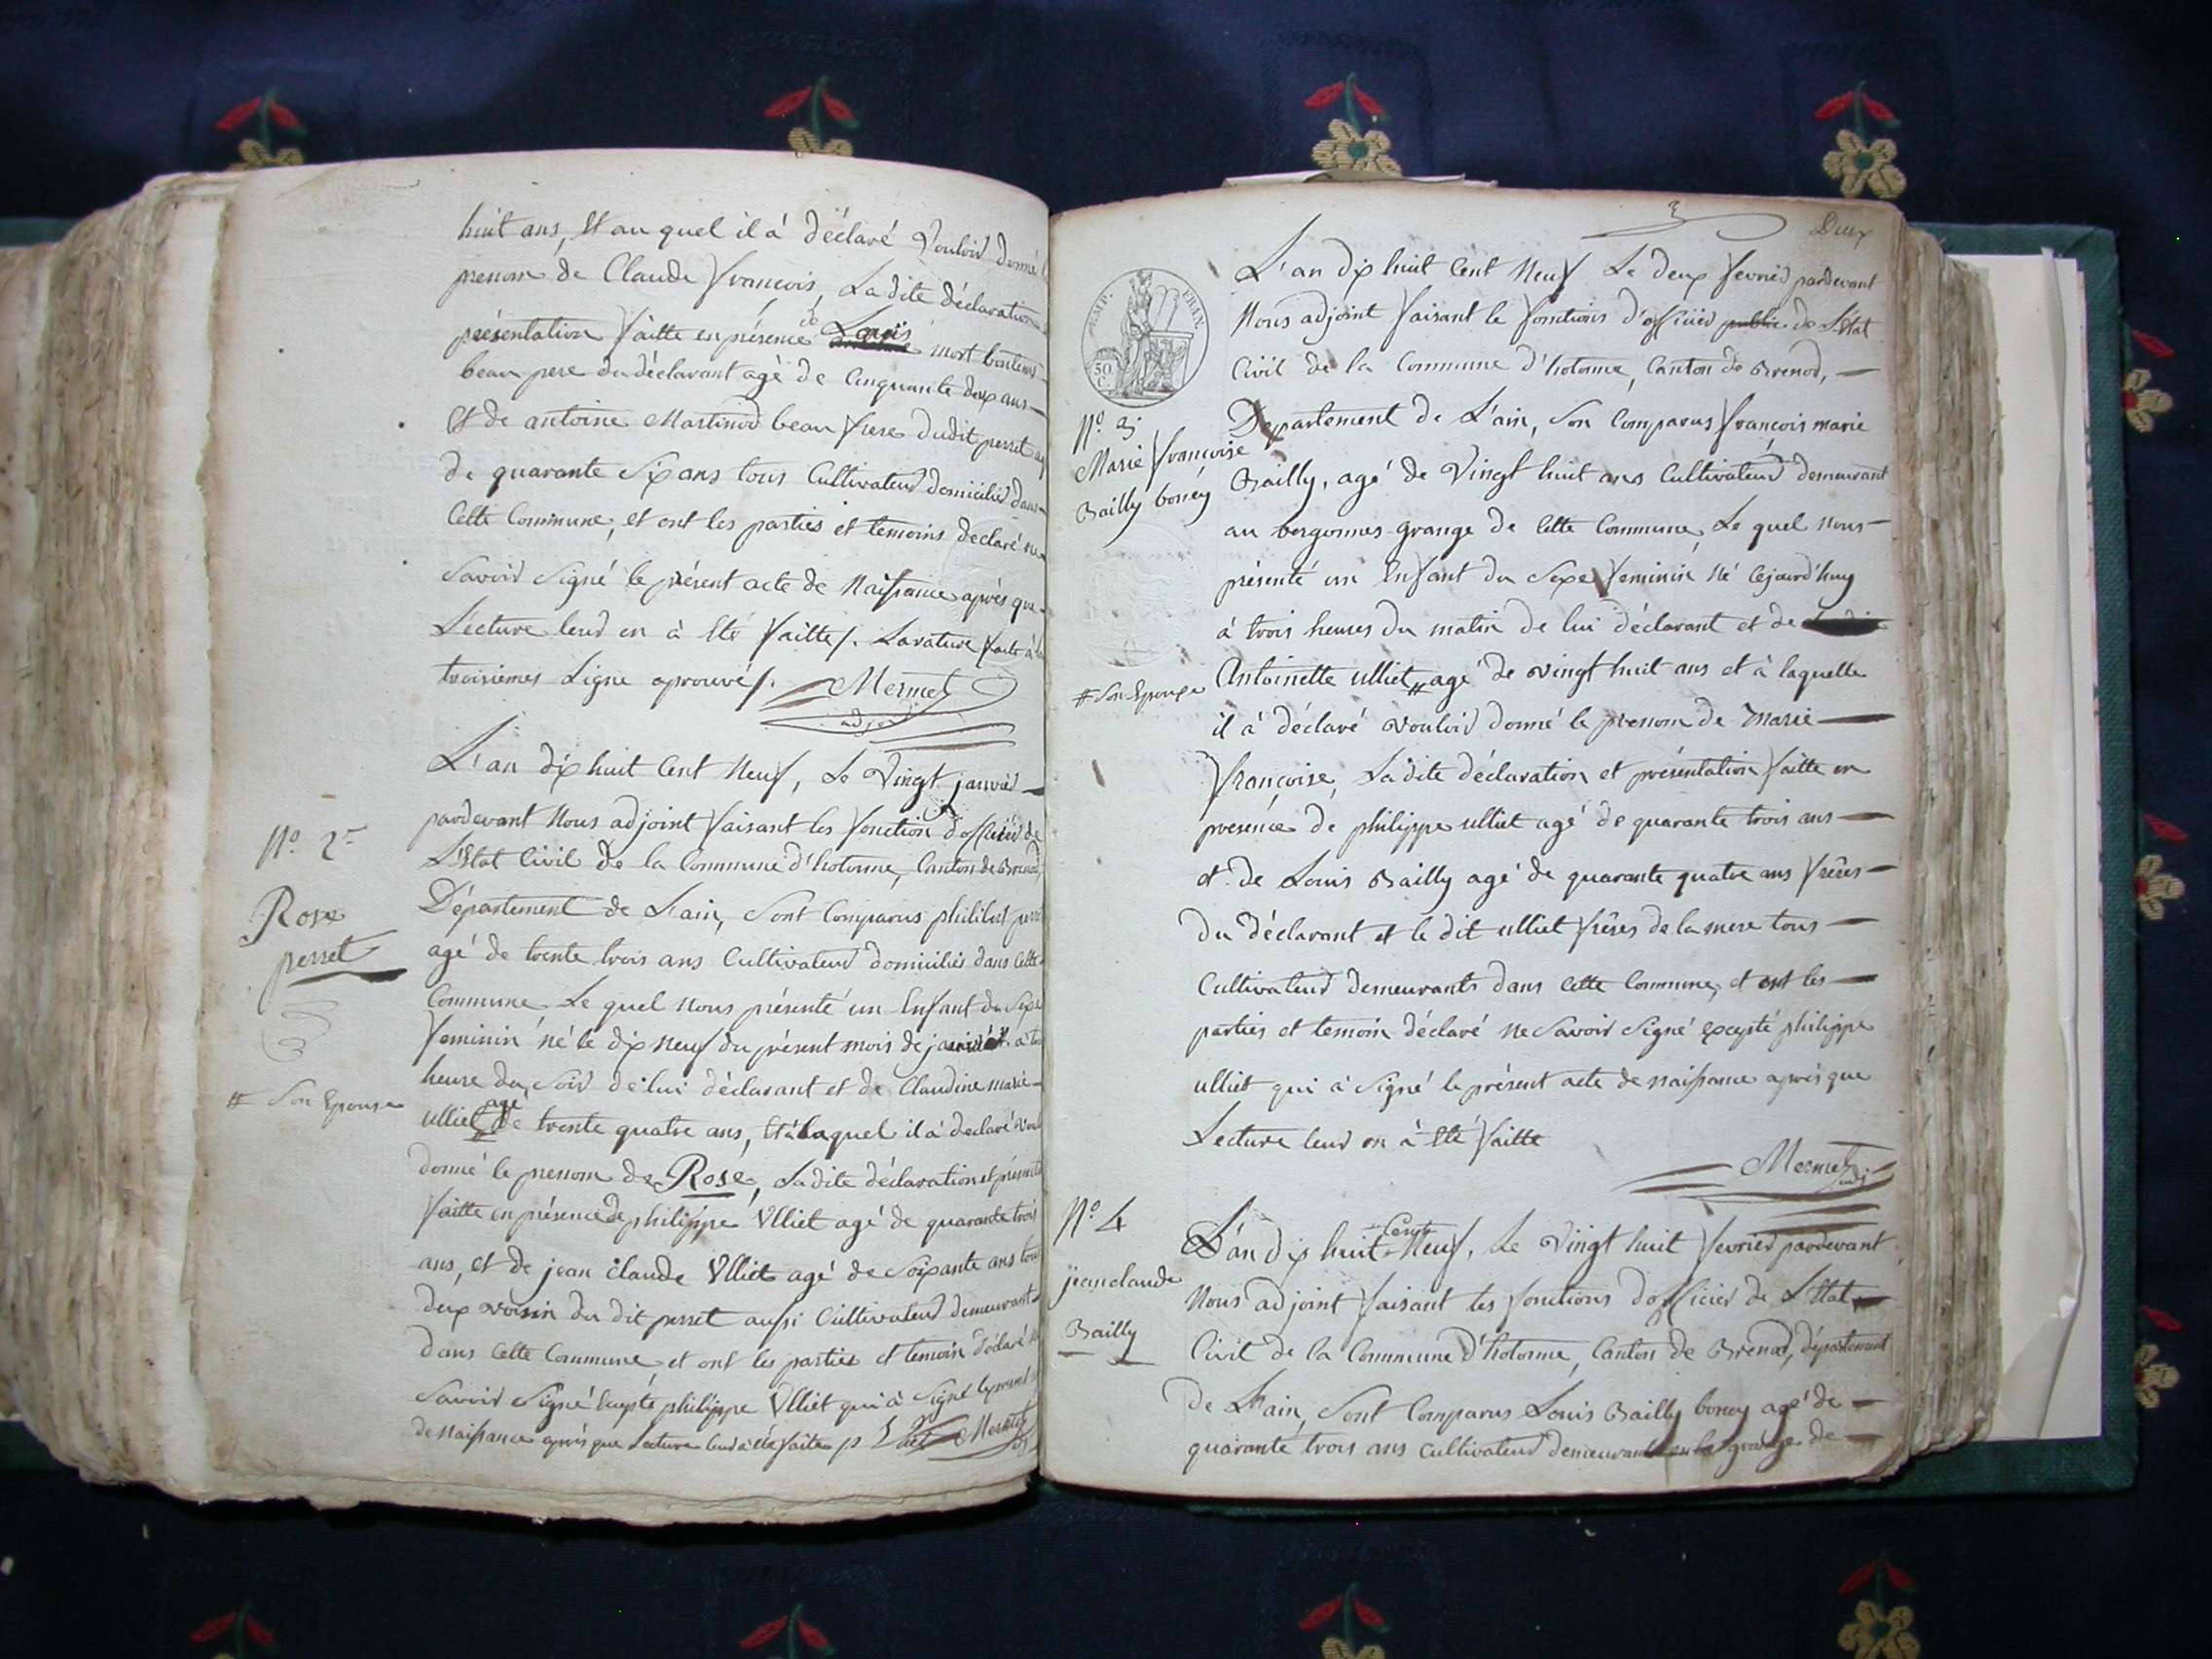 huit ans, Et au quel il à déclaré Vouloir donné
prenom de Claude françois, La dite déclaration
présentation faitte en présence de Louis mort
beau pere du déclarant agé de Cinquante deux ans
Et de antoine Martinod beau frere dudit perret
de quarante Six ans tous Cultivateur domicilié dans
Cette Commune, et ont les parties et temoins déclaré ne
Savoir Signé le présent acte de Naissance après que
Lecture leur en à Eté faitte /. La rature faite à la
troisiemes Ligne aprouvé /.
Mermet
adj
L'an dix huit Cent Neuf, Le Vingt janvier
pardevant Nous adjoint faisant les fonction d'officier de
L'Etat Civil de la Commune d'hotonne, Canton de Brenod,
N.º 2
Département de L'ain, Sont Comparus philibert
Rose
perret
agé de trente trois ans Cultivateur domicilié dans Cette
Commune Le quel nous présenté un Enfant du Sexe
feminin né le dix neuf du présent mois de janvier à
heure du Soir de lui déclarant et de Claudine marie
# Son Epouse
Ulliet agé de trente quatre ans, Et à laquel il à declaré
donné le prenom de Rose, Ladite déclaration et
faitte en présence de philippe Ulliet agé de quarante trois
ans, et de jean Claude Ulliet agé de Soixante ans tous
deux voisin du dit perret aussi Cultivateur demeurant
dans Cette Commune et ont les parties et temoin déclaré
Savoir Signé Excepté philippe Ulliet qui à Signé le present
de Naissance après que Lecture leur à été faite p Ulliet Mermet
3 Deux
L'an dix huit Cent Neuf Le deux fevrier pardevant
Nous adjoint faisant le fonctions d'officier public de L'Etat
Civil de la Commune d'hotonne, Canton de Brenod,
EMP. FRAN.
50 C.
N.º 3
Marie françoise
Bailly boney
Departement de L'ain, Son Comparus françois marie
Bailly, agé de Vingt huit ans Cultivateur demeurant
au bergonnes grange de Cette Commune, Le quel nous
présenté un Enfant du Sexe feminin né Cejourd'huy
à trois heures du matin de lui déclarant et de
# Son Epouse
Antoinette ulliet # agé de vingt huit ans et à laquelle
il à déclaré vouloir donné le prenom de Marie
françoise, La dite déclaration et présentation faitte en
presence de philippe ulliet agé de quarante trois ans
et de Louis Bailly agé de quarante quatre ans frêres
du déclarant et le dit ulliet frêres de la mere tous
Cultivateur demeurants dans Cette Commune, et ont les
parties et temoin déclaré ne Savoir Signé excepté philippe
ulliet qui à Signé le présent acte de naissance après que
Lecture leur en à Eté faitte
Mermet adj
N.º 4
jean claude
Bailly
L'an dix huit Cent Neuf, Le Vingt huit fevrier pardevant
Nous adjoint faisant les fonctions d'officier de L'Etat
Civil de la Commune d'hotonne, Canton de Brenod, département
de L'ain, Sont Comparus Louis Bailly boney agé de
quarante trois ans Cultivateur demeurant en la grange de